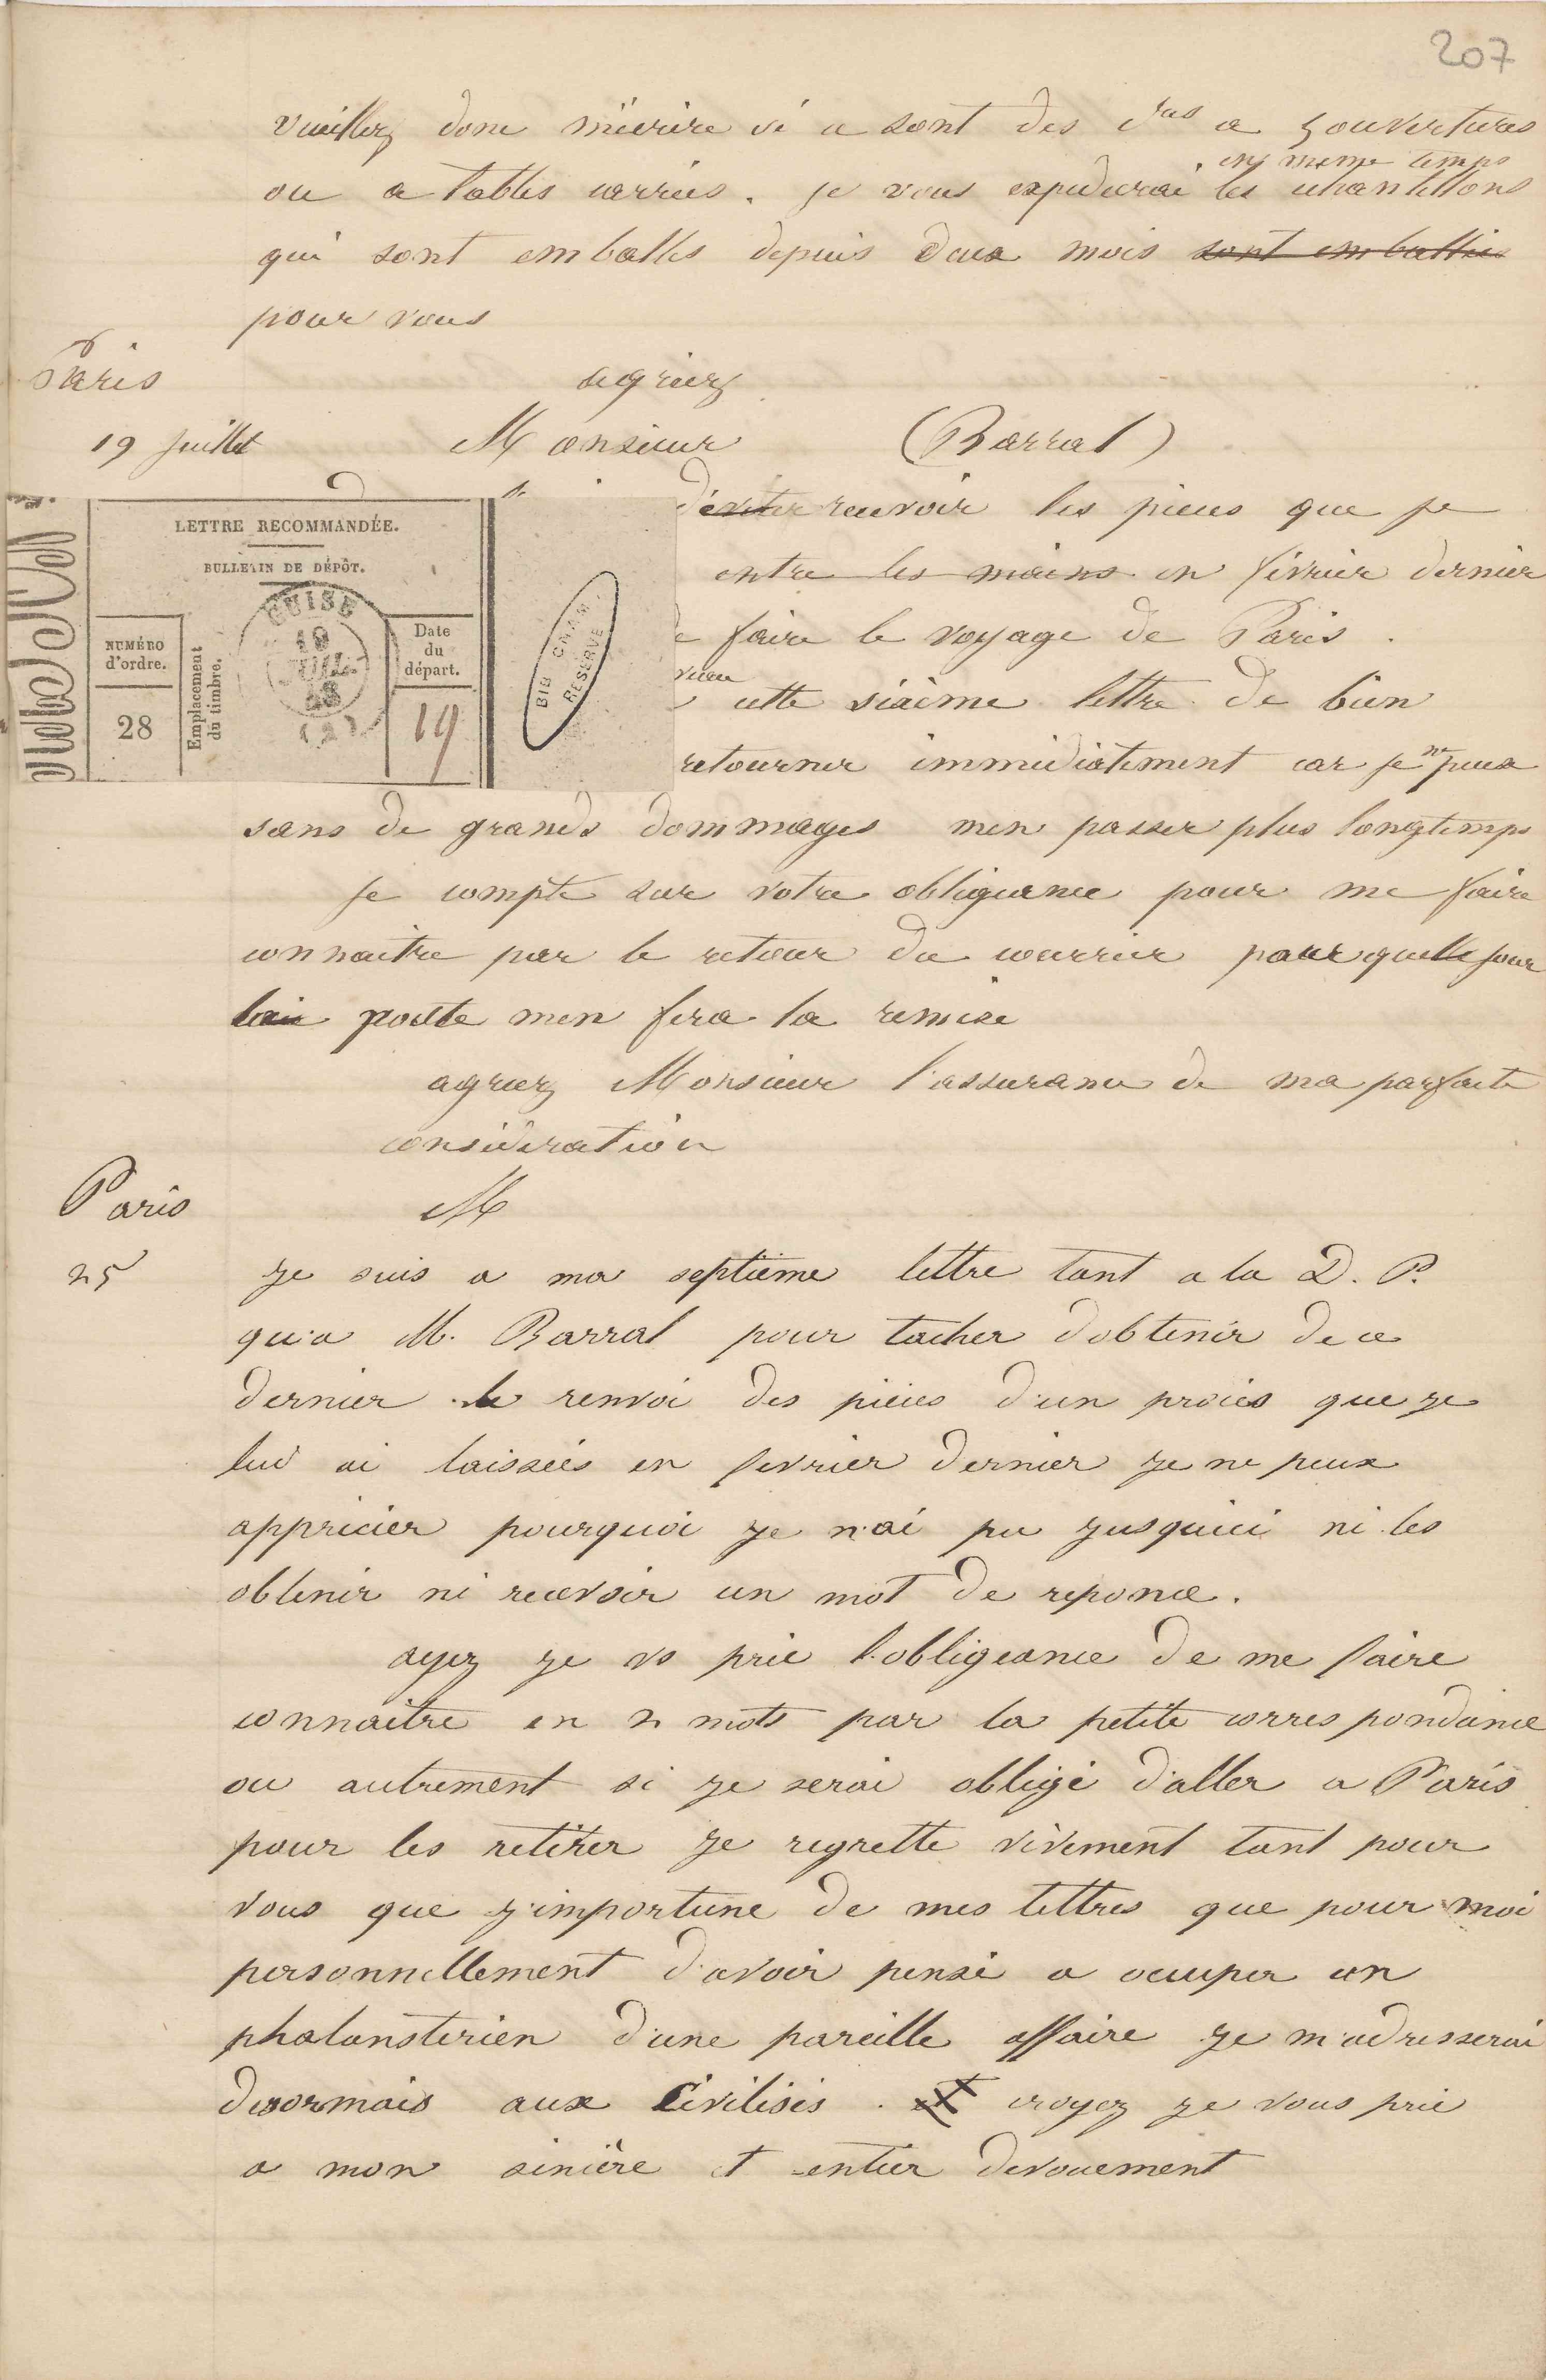 207
veuillez donc m'écrire si ce sont des dras a 3 ouvertures
en meme temps
ou a tables carrées. je vous expedierai les echantillons
qui sont emballés depuis deux mois sont emballés
pour vous
Paris
agréez
19 juillet Monsieur (Barral)
d'éviter recevoir les pieces que je
entre les mains en février dernier
faire le voyage de Paris.
cette sixième lettre de bien
retourner immédiatement car je ne peux
LETTRE RECOMMANDÉE.
BULLETIN DE DÉPÔT.
NUMÉRO
d'ordre.
28
Emplacement
du timbre.
GUISE
19
JUIL.
58
(2)
Date
du
départ.
19
BIB CNAM
RESERVE
sans de grands dommages men passer plus longtemps
je compte sur votre obligeance pour me faire
connaitre par le retour du courrier pour quelle jour
poste men fera la remise
agreez Monsieur l'assurance de ma parfaite
considération
Paris
M
25
je suis a ma septième lettre tant a la D. P.
qu'a M. Barral pour tacher d'obtenir de ce
dernier le renvoi des pièces d'un procès que je
lui ai laissées en fevrier dernier je ne peux
apprécier pourquoi je n'ai pu jusquici ni les
obtenir ni recevoir un mot de reponce.
ayez je vs prie l'obligeance de me faire
connaitre en 2 mots par la petite correspondance
ou autrement si je serai obligé d'aller a Paris
pour les retirer je regrette vivement tant pour
vous que j'importune de mes lettres que pour moi
personnellement d'avoir pensé a occuper un
phalansterien d'une pareille affaire je m'adresserai
desormais aux Civilisés. et croyez je vous prie
a mon sincère et entier devouement